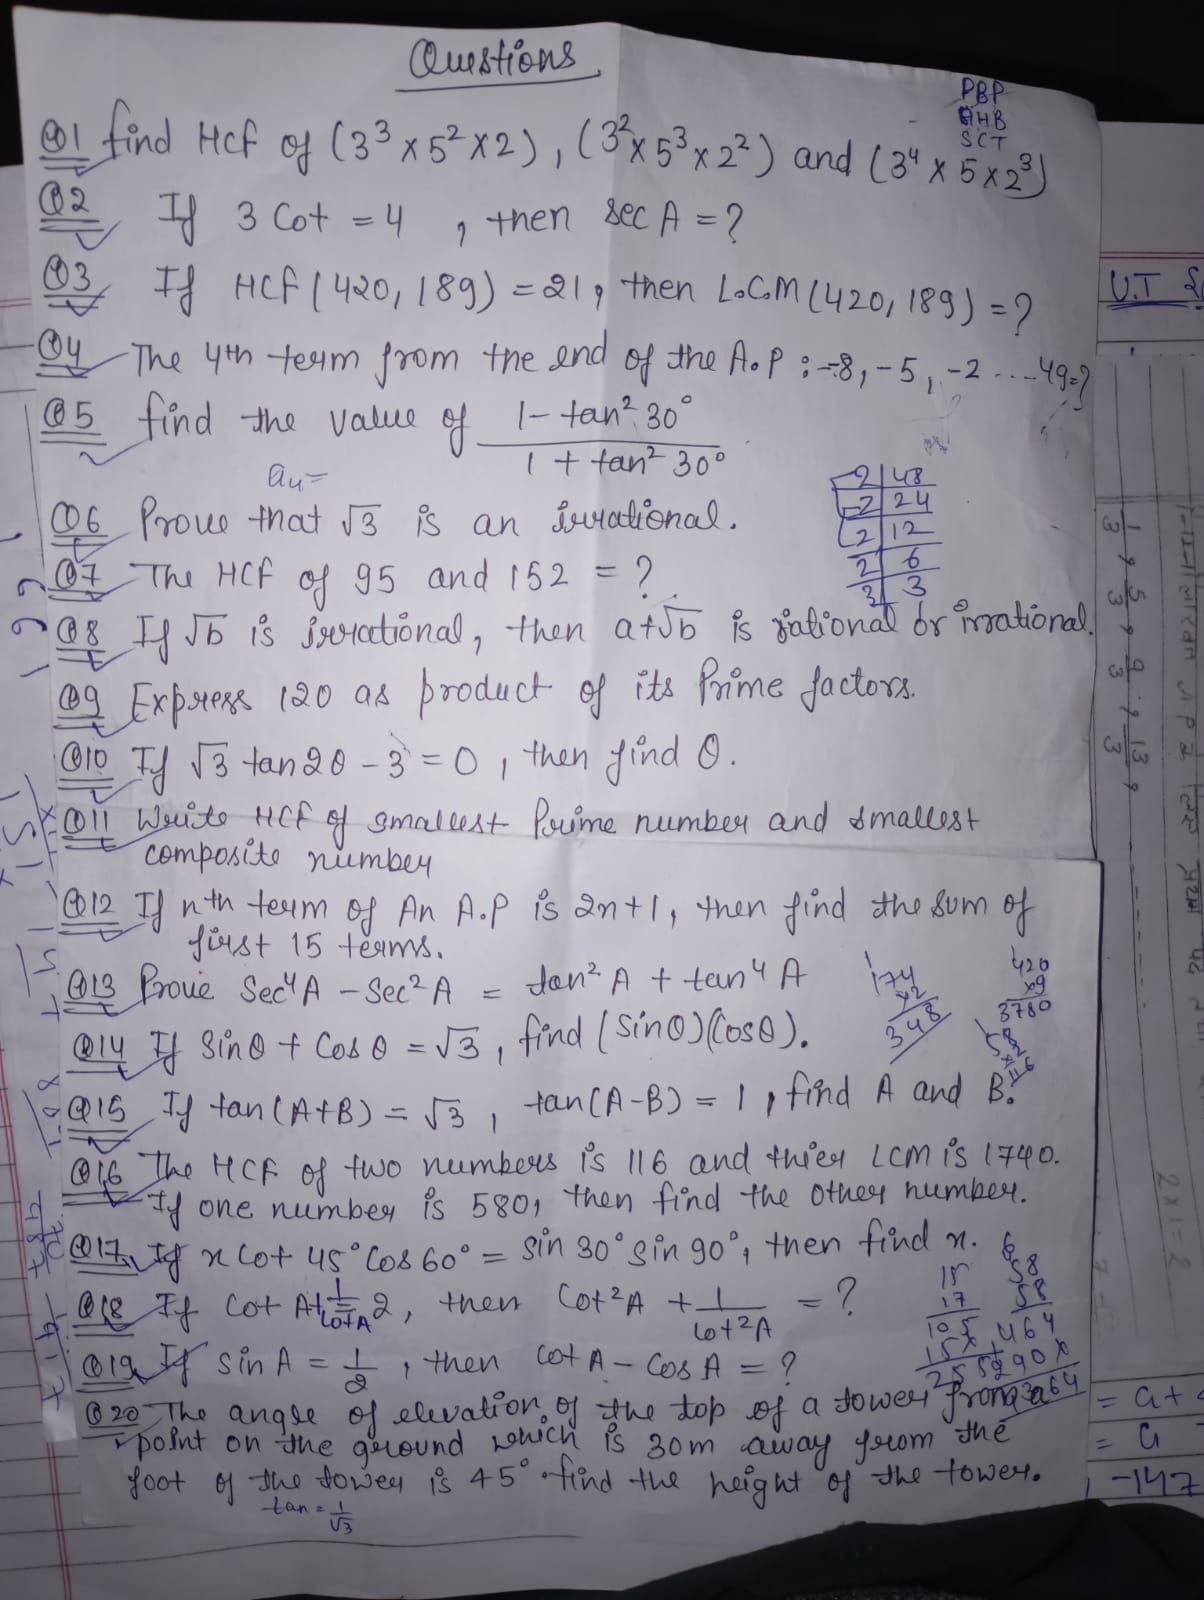 Questions
PBP
QHB
SCT
Q1 find HCf of (3³ x 5² x 2), (3² x 5³ x 2²) and (3⁴ x 5 x 2³)
Q2 If 3 Cot = 4 , then sec A = ?
Q3 If HCf (420, 189) = 21, then L.C.M (420, 189) = ?
Q4 The 4th term from the end of the A.P : -8, -5, -2 ....49=?
Q5 find the value of 1 - tan² 30° / 1 + tan² 30°
a₄=
Q6 Prove that √3 is an irrational.
Q7 The HCf of 95 and 152 = ?
Q8 If √b is irrational, then a+√b is rational or irrational.
Q9 Express 120 as product of its Prime factors.
Q10 If √3 tan2θ - 3 = 0 , then find θ.
Q11 Write HCf of smallest Prime number and smallest
composite number
Q12 If nth term of An A.P is 2n+1, then find the sum of
first 15 terms.
Q13 Prove Sec⁴A - Sec²A = tan² A + tan⁴ A
Q14 If Sinθ + Cosθ = √3 , find (Sinθ)(Cosθ).
Q15 If tan(A+B) = √3 , tan(A-B) = 1 , find A and B.
Q16 The HCF of two numbers is 116 and thier LCM is 1740.
If one number is 580, then find the other number.
Q17 If x Cot 45° Cos 60° = sin 30° sin 90°, then find x.
Q18 If Cot A + 1/CotA = 2, then Cot²A + 1/Cot²A = ?
Q19 If sin A = 1/2 , then Cot A - Cos A = ?
Q20 The angle of elevation of the top of a tower from a
point on the ground which is 30m away from the
foot of the tower is 45° . find the height of the tower.
tan = 1/√3
2 | 48
2 | 24
2 | 12
2 | 6
3 | 3
174
x2
348
420
x9
3780
15
17
105
15x
255
58
58
464
290x
3364
U.T
1/3, 5/3, 9/3, 13/3,
2 x 1 = 2
= a+
= a
-147